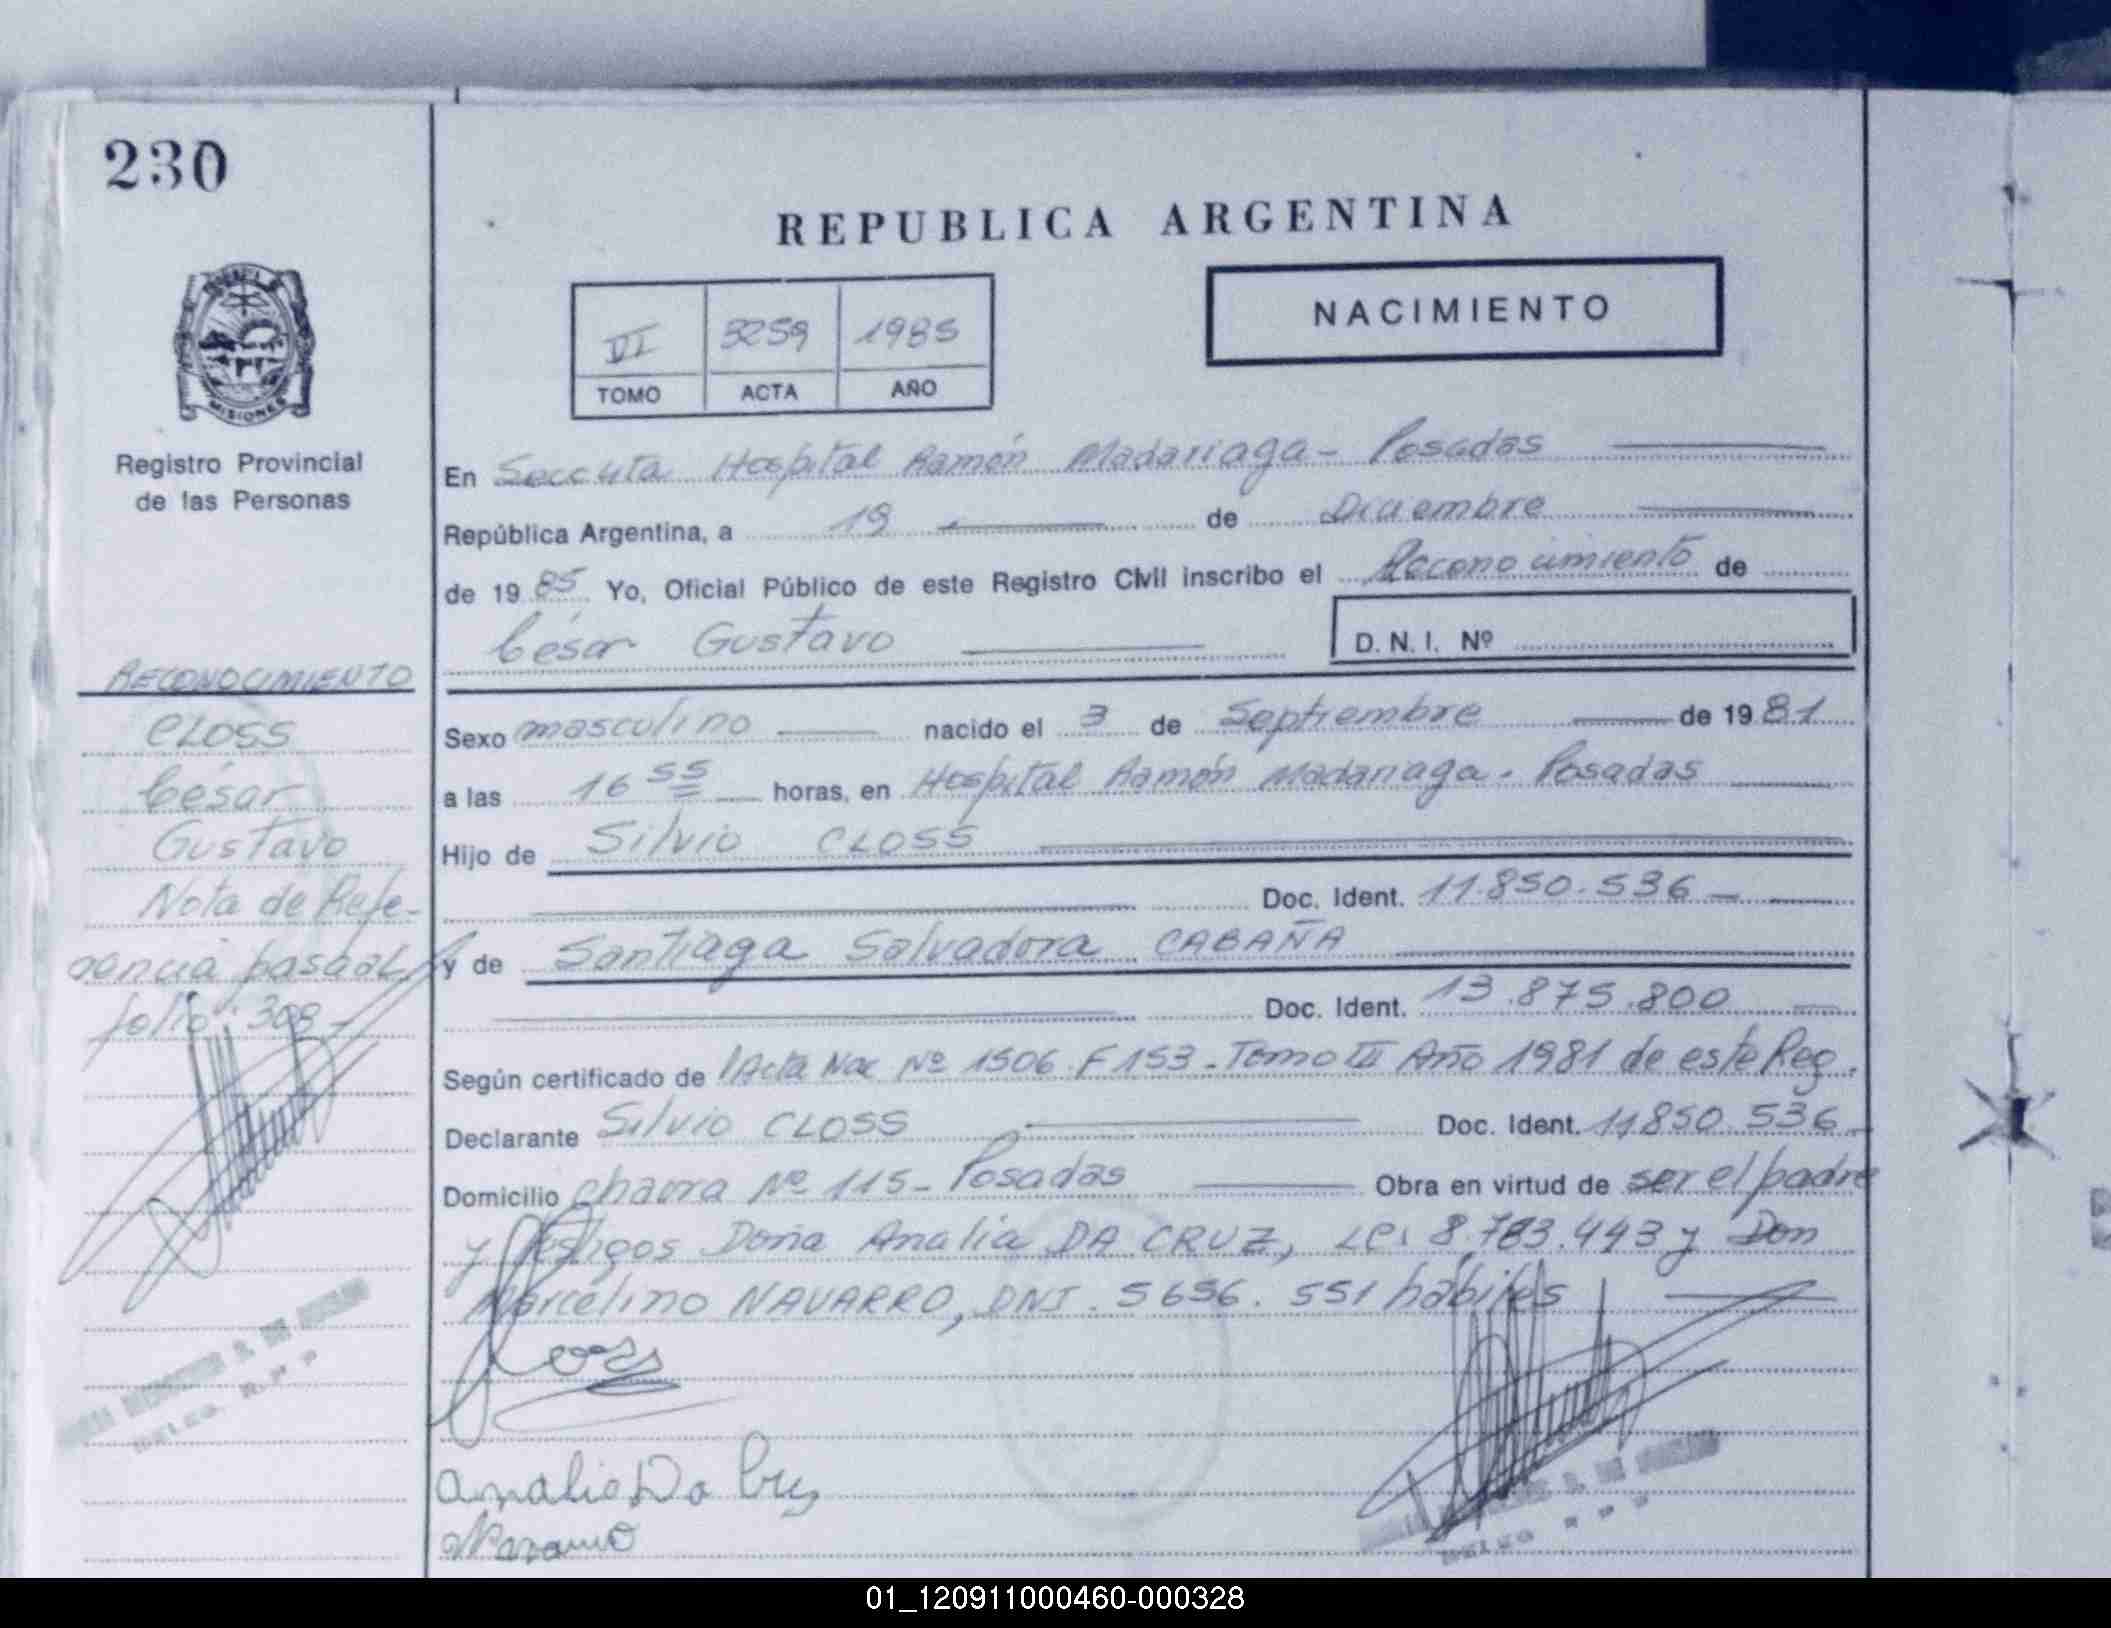 230
MISIONES
Registro Provincial
de las Personas
RECONOCIMIENTO
CLOSS
César
Gustavo
Nota de Refe-
rencia pasa al
folio 308
REPUBLICA ARGENTINA
NACIMIENTO
VI 3259 1985
TOMO ACTA AÑO
En Secc 4ta Hospital Ramón Madariaga - Posadas
República Argentina, a 19 de Diciembre
de 1985 Yo, Oficial Público de este Registro Civil inscribo el Reconocimiento de
César Gustavo D.N.I. Nº
Sexo masculino nacido el 3 de Septiembre de 1981
a las 16 55 horas, en Hospital Ramón Madariaga - Posadas
Hijo de Silvio CLOSS
Doc. Ident. 11.850.536
y de Santiaga Salvadora CABAÑA
Doc. Ident. 13.875.800
Según certificado de Acta Nac Nº 1506 F 153 - Tomo III Año 1981 de este Reg.
Declarante Silvio CLOSS Doc. Ident. 11,850.536
Domicilio chacra Nº 115 - Posadas Obra en virtud de ser el padre
y testigos Doña Analia DA CRUZ, LC. 8.783.443 y Don
Marcelino NAVARRO, DNI. 5656.551 hábiles
Analia Da Cruz
R.P.P
DELEG R P P
01_120911000460-000328